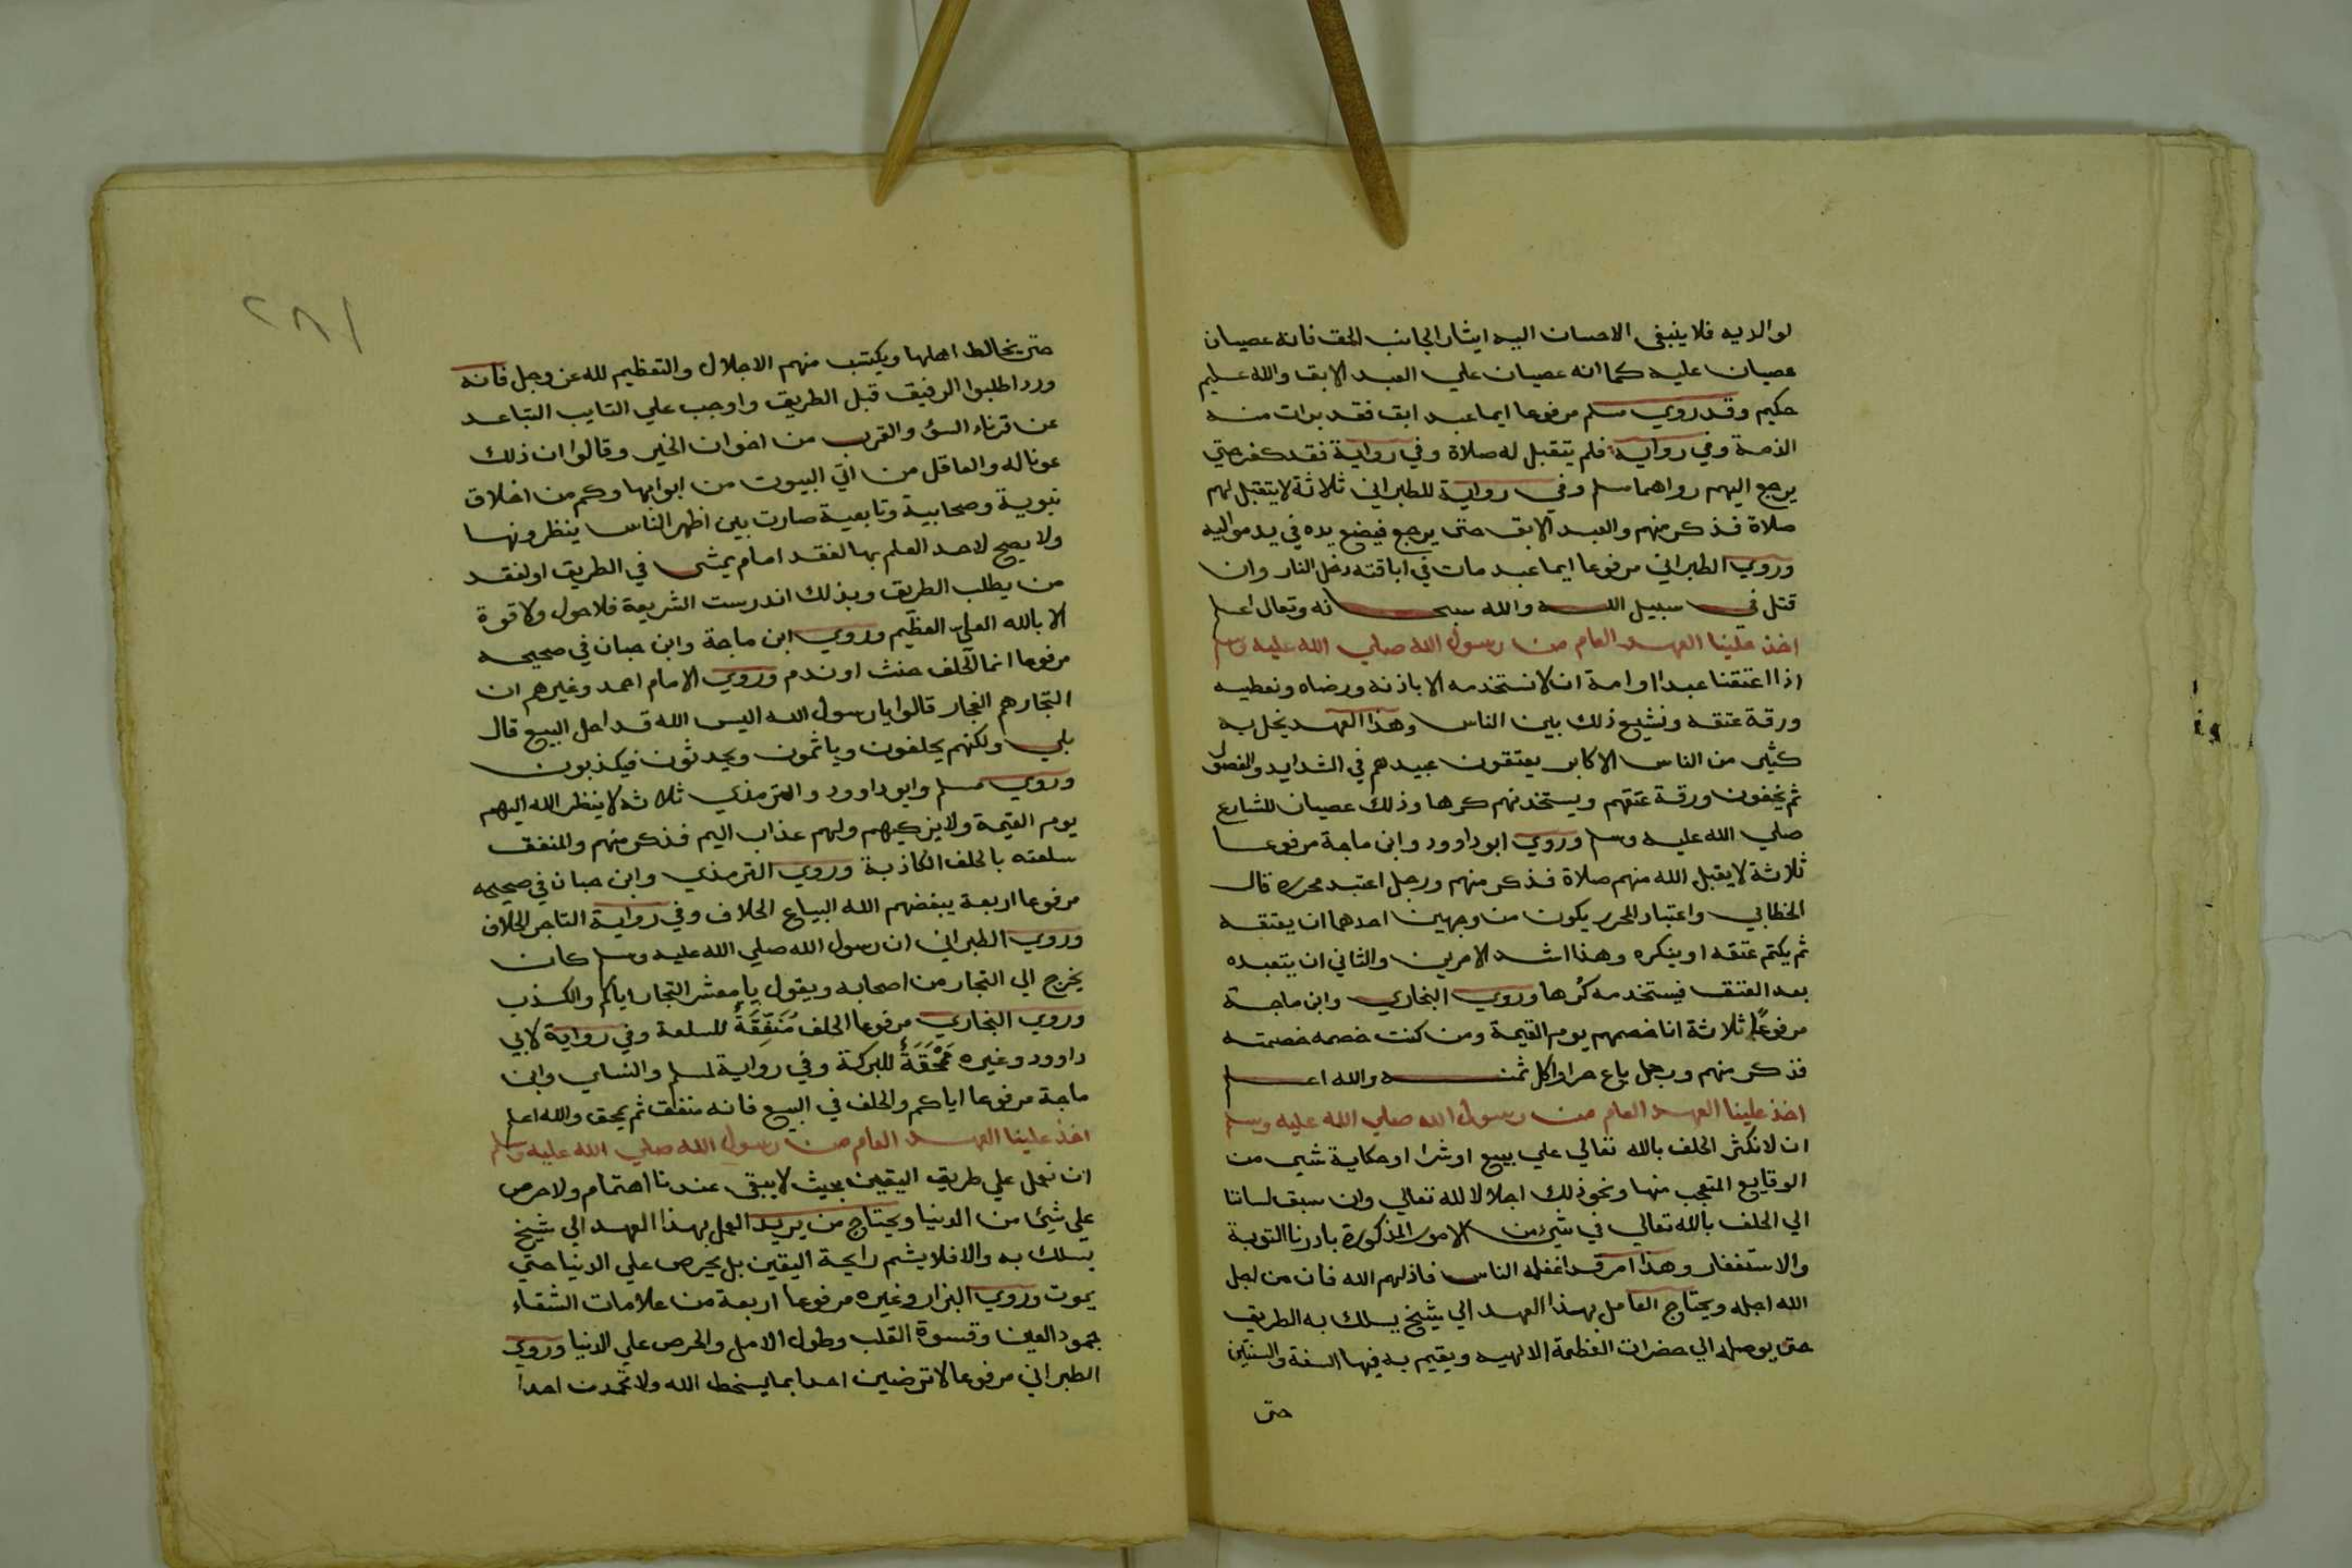 لوالديه فلا ينبغي الاحسان اليه ايثارا لجانب الحق فانه عصيان
عصيان عليه كما انه عصيان علي العبد الابق والله عليم
حكيم وقد روي مسلم مرفوعا ايما عبد ابق فقد برات منه
الذمة وفي رواية فلم يتقبل له صلاة وفي رواية فقد كفر حتي
يرجع اليهم رواهما مسلم وفي رواية للطبراني ثلاثة لا يتقبل لهم
صلاة فذكر منهم والعبد الابق حتى يرجع فيضع يده في يد مواليه
وروي الطبراني مرفوعا ايما عبد مات في اباقته دخل النار وان
قتل في سبيل الله والله سبحانه وتعالى اعلم
اخذ علينا العهد العام من رسول الله صلي الله عليه وسلم
اذا اعتقنا عبدا او امة ان لا نستخدمه الا باذنه ورضاه ونعطيه
ورقة عتقه ونشيع ذلك بين الناس وهذا العهد يخل به
كثير من الناس الاكابر يعتقون عبيدهم في الشدايد
ثم يخفون ورقة عتقهم ويستخدمنهم كرها وذلك عصيان للشارع
صلي الله عليه وسلم وروي ابو داوود وابن ماجة مرفوعا
ثلاثة لا يقبل الله منهم صلاة فذكر منهم ورجل اعتبد محرره قال
الخطابي واعتبار المحرر يكون من وجهين احدهما ان يعتقه
ثم يكتم عتقه او ينكره وهذا اشد الامرين والثاني ان يتعبده
بعد العتق فيستخدمه كُرها وروي البخاري وابن ماجة
مرفوعًا ثلاثة انا خصمهم يوم القيمة ومن كنت خصمه خصمته
فذكر منهم ورجل باع حرا واكل ثمنه والله اعلم
اخذ علينا العهد العام من رسول الله صلي الله عليه وسلم
ان لا نكثر الحلف بالله تعالي علي بيع او شرا او حكاية شي من
الوقايع المتعجب منها ونحو ذلك اجلالا لله تعالي وان سبق لساننا
الي الحلف بالله تعالي في شي من الامور المذكورة بادرنا التوبة
والاستغفار وهذا امر قد اغفله الناس فاذلهم الله فان من اجل
الله اجله ويحتاج العامل بهذا العهد الي شيخ يسلك به الطريق
حتى يوصله الي حضرات العظمة الالهيه ويقيم به فيها السنة والسنتين
حتى
٢٨١
حتى يخالط اهلها ويكتسب منهم الاجلال والتعظيم لله عز وجل فانه
ورد اطلبوا الرفيق قبل الطريق واوجب علي التايب التباعد
عن قرناء السؤ والقرب من اخوان الخير وقالوا ان ذلك
عونا له والعاقل من اتي البيوت من ابوابها وكم من اخلاق
نبوية وصحابية وتابعية صارت بين اظهر الناس ينظرونها
ولا يصح لاحد العلم بها لفقد امام يمشى في الطريق او لفقد
من يطلب الطريق وبذلك اندرست الشريعة فلا حول ولا قوة
الا بالله العلي العظيم وروي ابن ماجة وابن حبان في صحيحه
مرفوعا انما الحلف حنث او ندم وروي الامام احمد وغيرهم ان
التجار هم الفجار قالوا يا رسول الله اليس الله قد احل البيع قال
بلي ولكنهم يحلفون وياثمون ويحدثون فيكذبون
وروي مسلم وابو داوود والترمذي ثلاثة لا ينظر الله اليهم
يوم القيمة ولا يزكيهم ولهم عذاب اليم فذكر منهم والمنفق
سلعته بالحلف الكاذبة وروي الترمذي وابن حبان في صحيحه
مرفوعا اربعة يبغضهم الله البياع الحلاف وفي رواية التاجر الحلاف
وروي الطبراني ان رسول الله صلي الله عليه وسلم كان
يخرج الي التجار من اصحابه ويقول يا معشر التجار اياكم والكذب
وروي البخاري مرفوعا الحلف مُنَفِّقَةٌ للسلعة وفي رواية لابي
داوود وغيره مَمْحَقَةٌ للبركة وفي رواية لمسلم والنساي وابن
ماجة مرفوعا اياكم والحلف في البيع فانه منفق ثم يمحق والله اعلم
اخذ علينا العهد العام من رسول الله صلي الله عليه وسلم
ان نعمل علي طريق اليقين بحيث لا يبقى عندنا اهتمام ولا حرص
علي شئ من الدنيا ويحتاج من يريد العمل بهذا العهد الي شيخ
يسلك به والا فلا يشم رايحة اليقين بل يحرص علي الدنيا حتي
يموت وروي البزار وغيره مرفوعا اربعة من علامات الشقاء
جمود العين وقسوة القلب وطول الامل والحرص علي الدنيا وروي
الطبراني مرفوعا لا ترضين احدا بما يسخط الله ولا تحمدن احدا